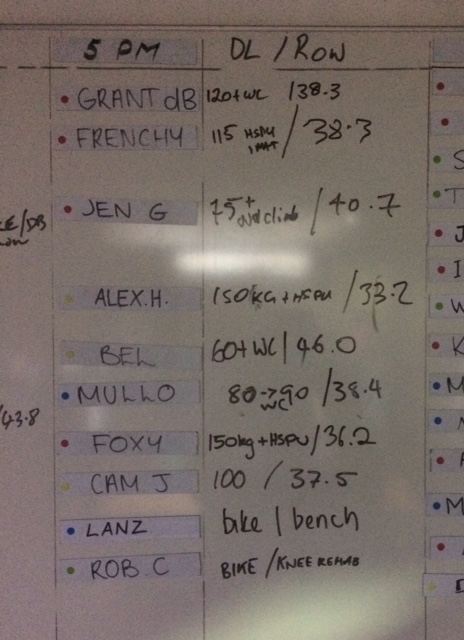 5 PM DL / ROW
GRANT dB 120+WC / 38.3
FRENCHY 115 HSPU 1 MAT / 38.3
JEN G 75+ wall climb / 40.7
ALEX.H. 150KG + HSPU / 33.2
BEL 60+WC | 46.0
MULLO 80->90 WC / 38.4
FOXY 150kg + HSPU / 36.2
CAM J 100 / 37.5
LANZ bike / bench
ROB.C BIKE / KNEE REHAB
/DB
/43.8
S
T
J
I
W
K
M
M